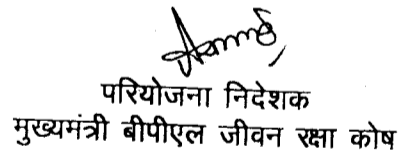 परियोजना निदेशक
मुख्यमंत्री बीपीएल जीवन रक्षा कोष